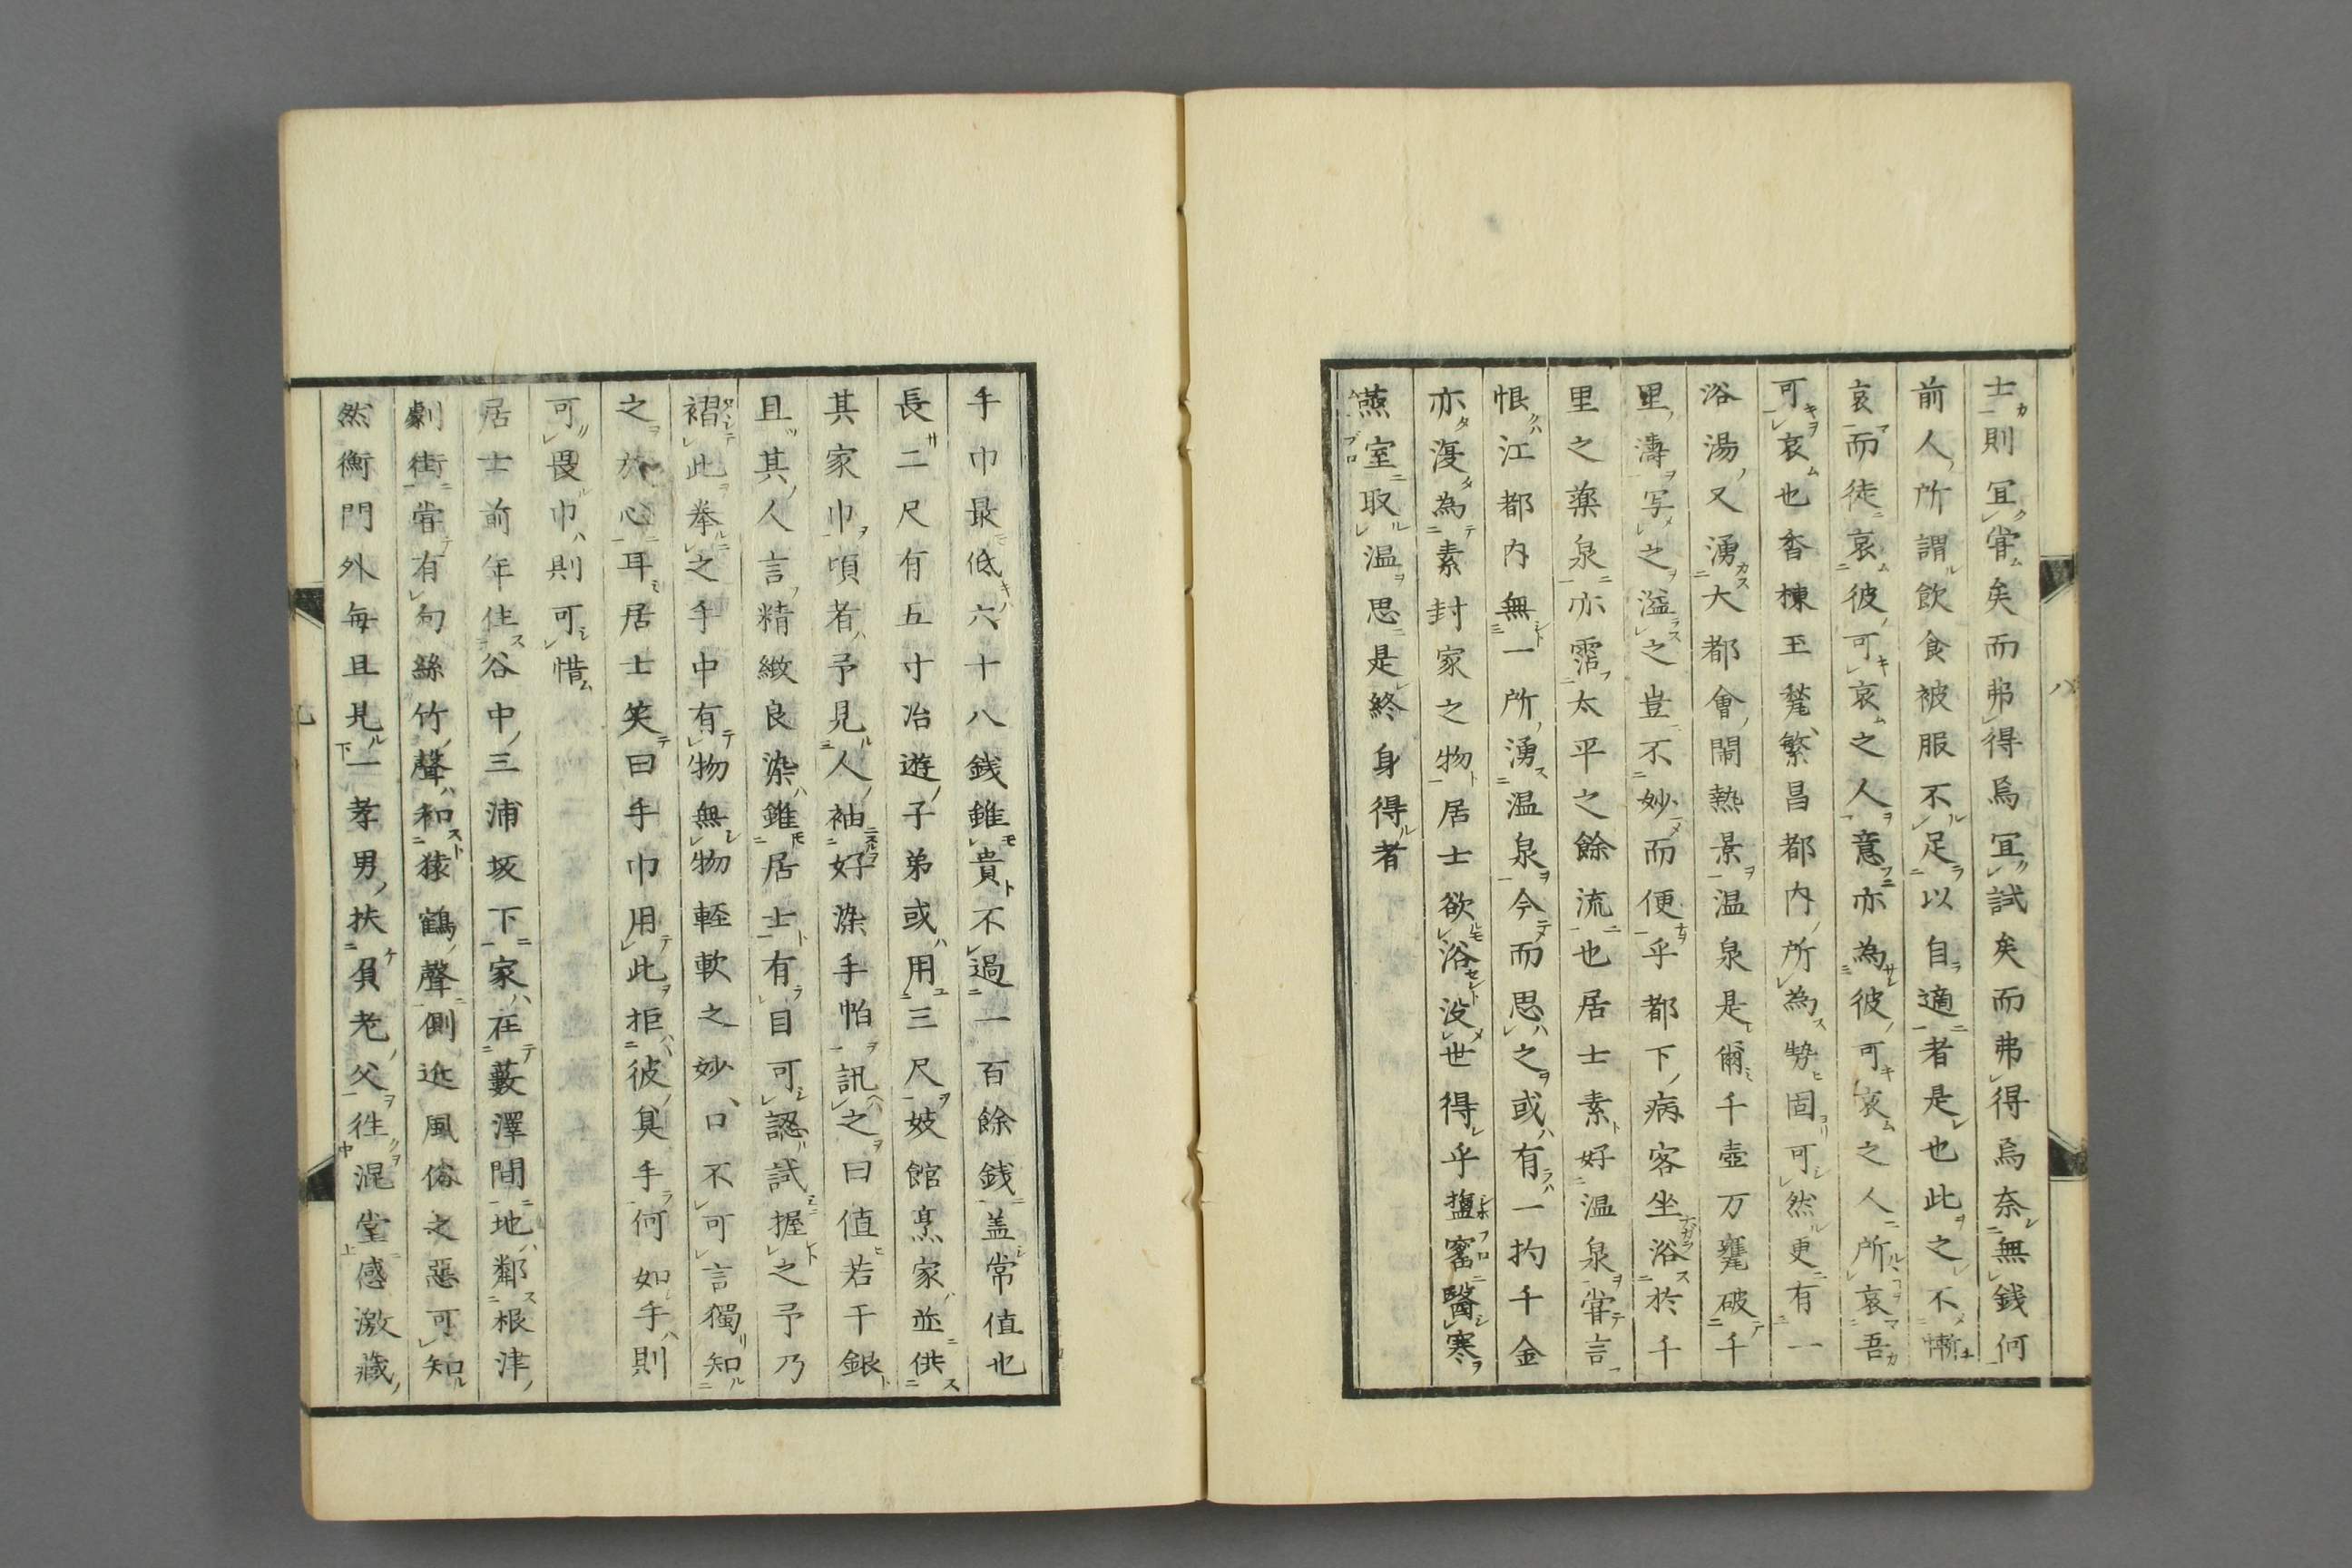 士則冝甞矣而弗得烏冝試矣而弗得烏奈無銭何
前人所謂飲食被服不足以自適者是也此之不慚
哀而徒哀彼可哀之人意亦為彼可哀之人所哀吾
可哀也香棟玉甃繁昌都内所為勢固可然更有一
浴湯又湧大都會閙熱景温泉是爾千壺万甕破千
里濤写之溢之豈不妙而便乎都下病客坐浴於千
里之薬泉亦霑太平之餘流也居士素好温泉甞言
恨江都内無一所湧温泉今而思之或有一杓千金
亦復為素封家之物居士欲浴没世得乎盬窰醫寒
燕室取温思是終身得者
八
手巾最低六十八銭錐貴不過一百餘銭盖常值也
長二尺有五寸冶遊子弟或用三尺妓館烹家並供
其家巾頃者予見人袖好染手帕訊之曰值若干銀
且其人言精緻良染錐居士有目可認試握之予乃
褶此拳之手中有物無物軽軟之妙口不可言獨知
之於心耳居士笑曰手巾用此拒彼臭手何如手則
可畏巾則可惜
居士前年住谷中三浦坂下家在藪澤間地鄰根津
劇街甞有句絲竹聲和猿鶴聲側近風俗之惡可知
然衡門外毎且見一孝男扶負老父徃混堂感激藏
九